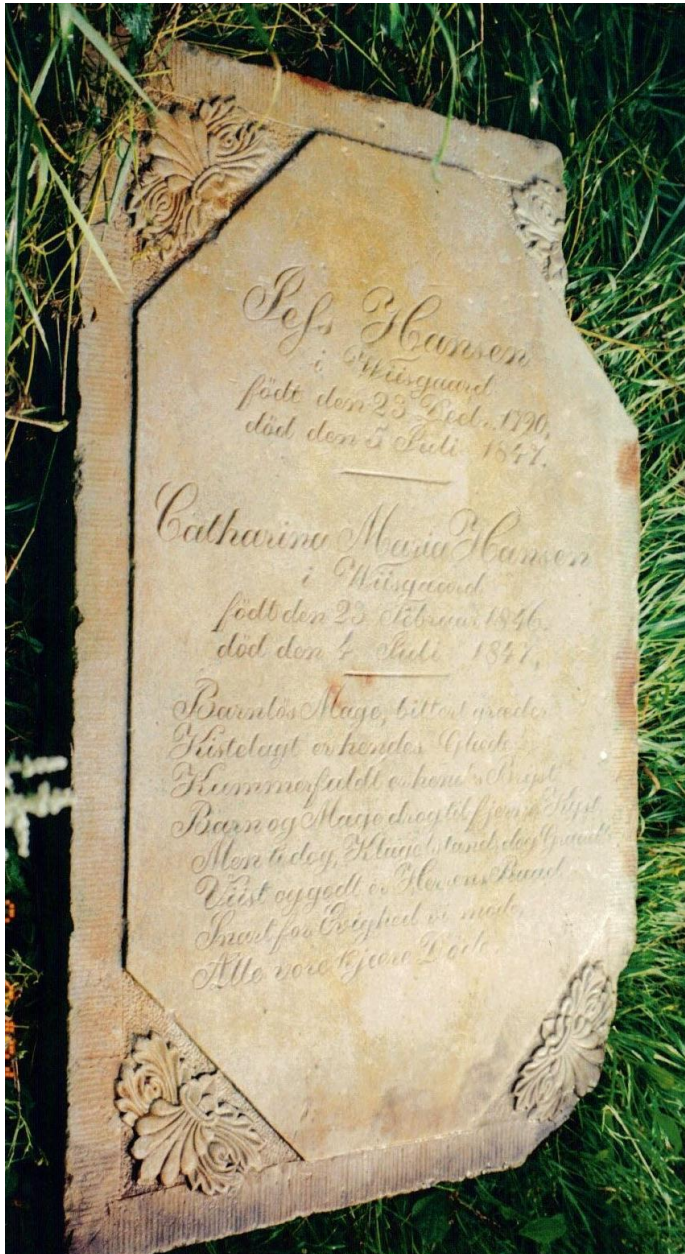 Jeſs Hansen
i Wiisgaard
födt den 23 Decb. 1790,
död den 5 Juli 1847.
Catharina Maria Hansen
i Wiisgaard
födt den 23 Februar 1846.
död den 4 Juli 1847,
Barnlös Mage, bittert græder
Kistelagt er hendes Glæde
Kummerfuldt er hendes Bryst
Barn og Mage drog til fjerne Kyst
Men ti dog, Klage! stands dog Graad!
Viist og godt er Herrens Raad
Snart for Evighed vi møde
Alle vore kjære Döde